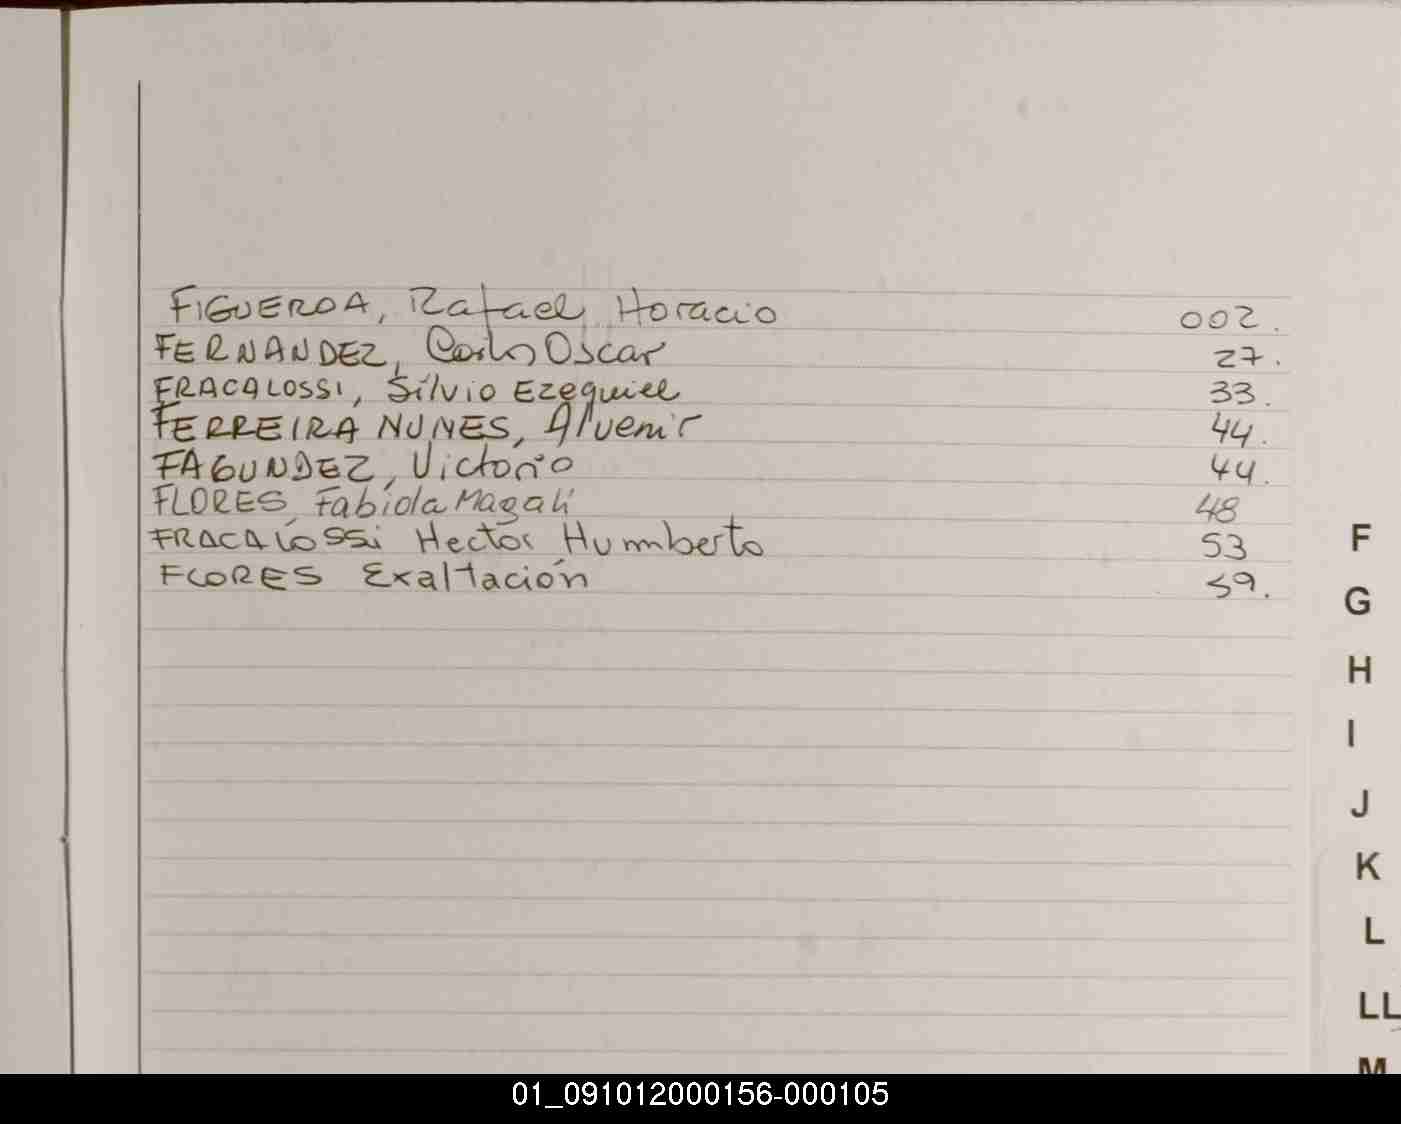 FIGUEROA, Rafael Horacio 002.
FERNANDEZ, Carlos Oscar 27.
FRACALOSSI, Silvio Ezequiel 33.
FERREIRA NUNES, Alvenir 44.
FAGUNDEZ, Victorio 44.
FLORES, Fabiola Magalí 48
FRACALOSSi Hector Humberto 53
FLORES Exaltación 59.
F
G
H
I
J
K
L
LL
M
01_091012000156-000105